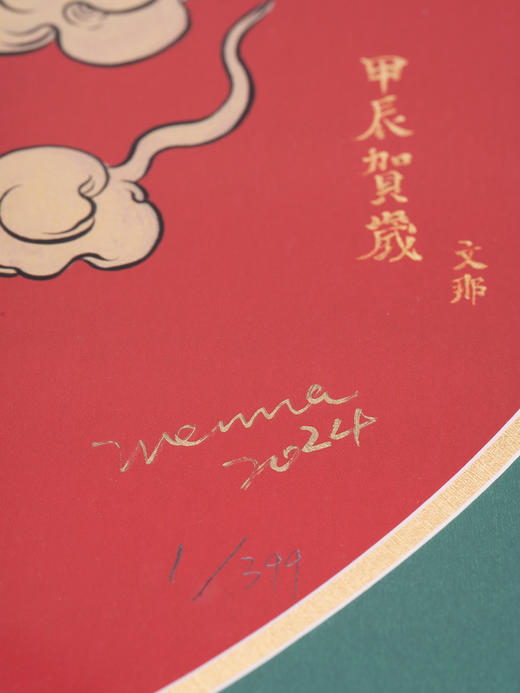 甲辰賀歲
文那
Wenna
2024
1/399